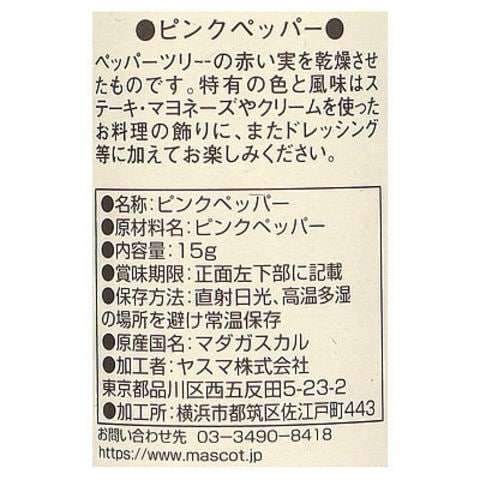 ●ピンクペッパー●
ペッパーツリーの赤い実を乾燥させ
たものです。特有の色と風味はス
テーキ・マヨネーズやクリームを使った
お料理の飾りに、またドレッシング
等に加えてお楽しみください。
●名称:ピンクペッパー
●原材料名:ピンクペッパー
●内容量:15g
●賞味期限:正面左下部に記載
●保存方法:直射日光、高温多湿
の場所を避け常温保存
●原産国名:マダガスカル
●加工者:ヤスマ株式会社
東京都品川区西五反田5-23-2
●加工所:横浜市都筑区佐江戸町443
お問い合わせ先 03-3490-8418
https://www.mascot.jp/